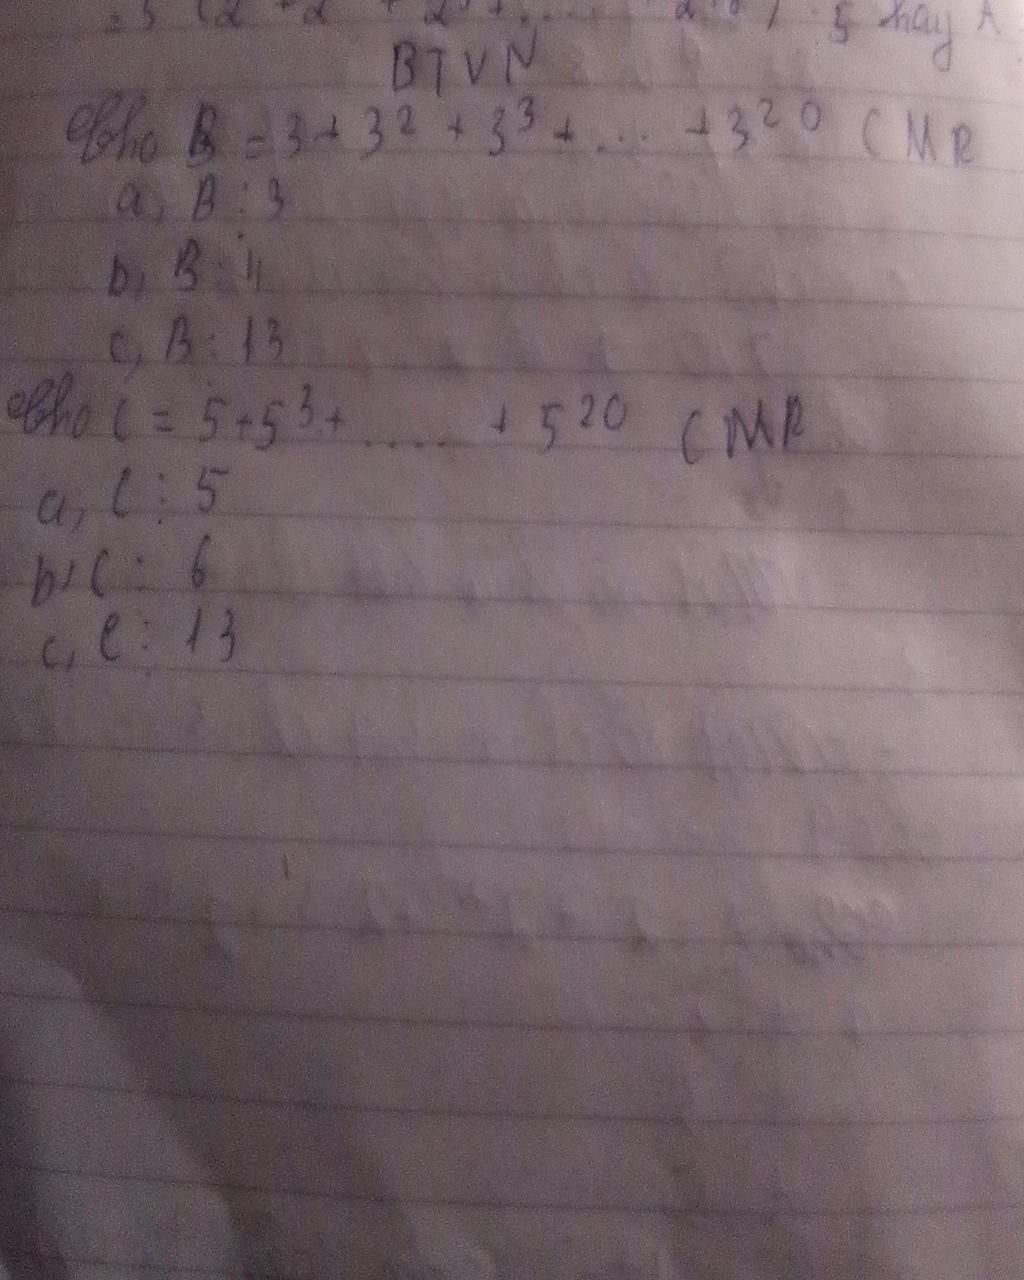 = 5 (2 + 2 + 2 + .... 2 ) ⋮ 5 hay A
BTVN
Cho B = 3 + 3² + 3³ + ... + 3²⁰ CMR
a, B ⋮ 3
b, B ⋮ 4
c, B ⋮ 13
Cho C = 5 + 5³ + ..... + 5²⁰ CMR
a, C ⋮ 5
b, C ⋮ 6
c, C ⋮ 13